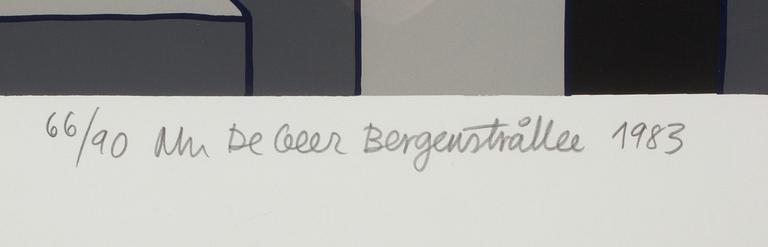 66/90 MM De Geer Bergenstråhle 1983